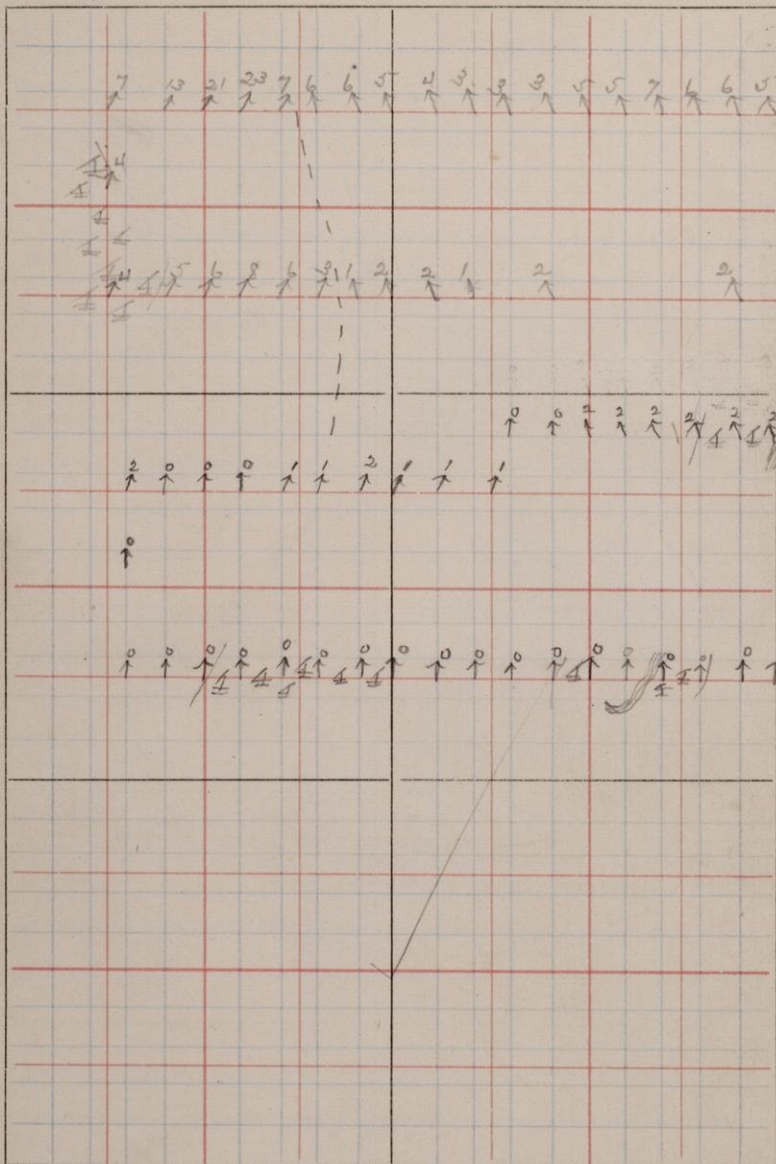 7 13 21 23 7 6 6 5 4 3 3 3 5 5 7 6 6 5
4
4 5 6 8 6 3 1 2 2 1 2 2
0 0 2 2 2 2 2 2
2 0 0 0 1 1 2 1 1 1
0
0 0 0 0 0 0 0 0 0 0 0 0 0 0 0 0 0